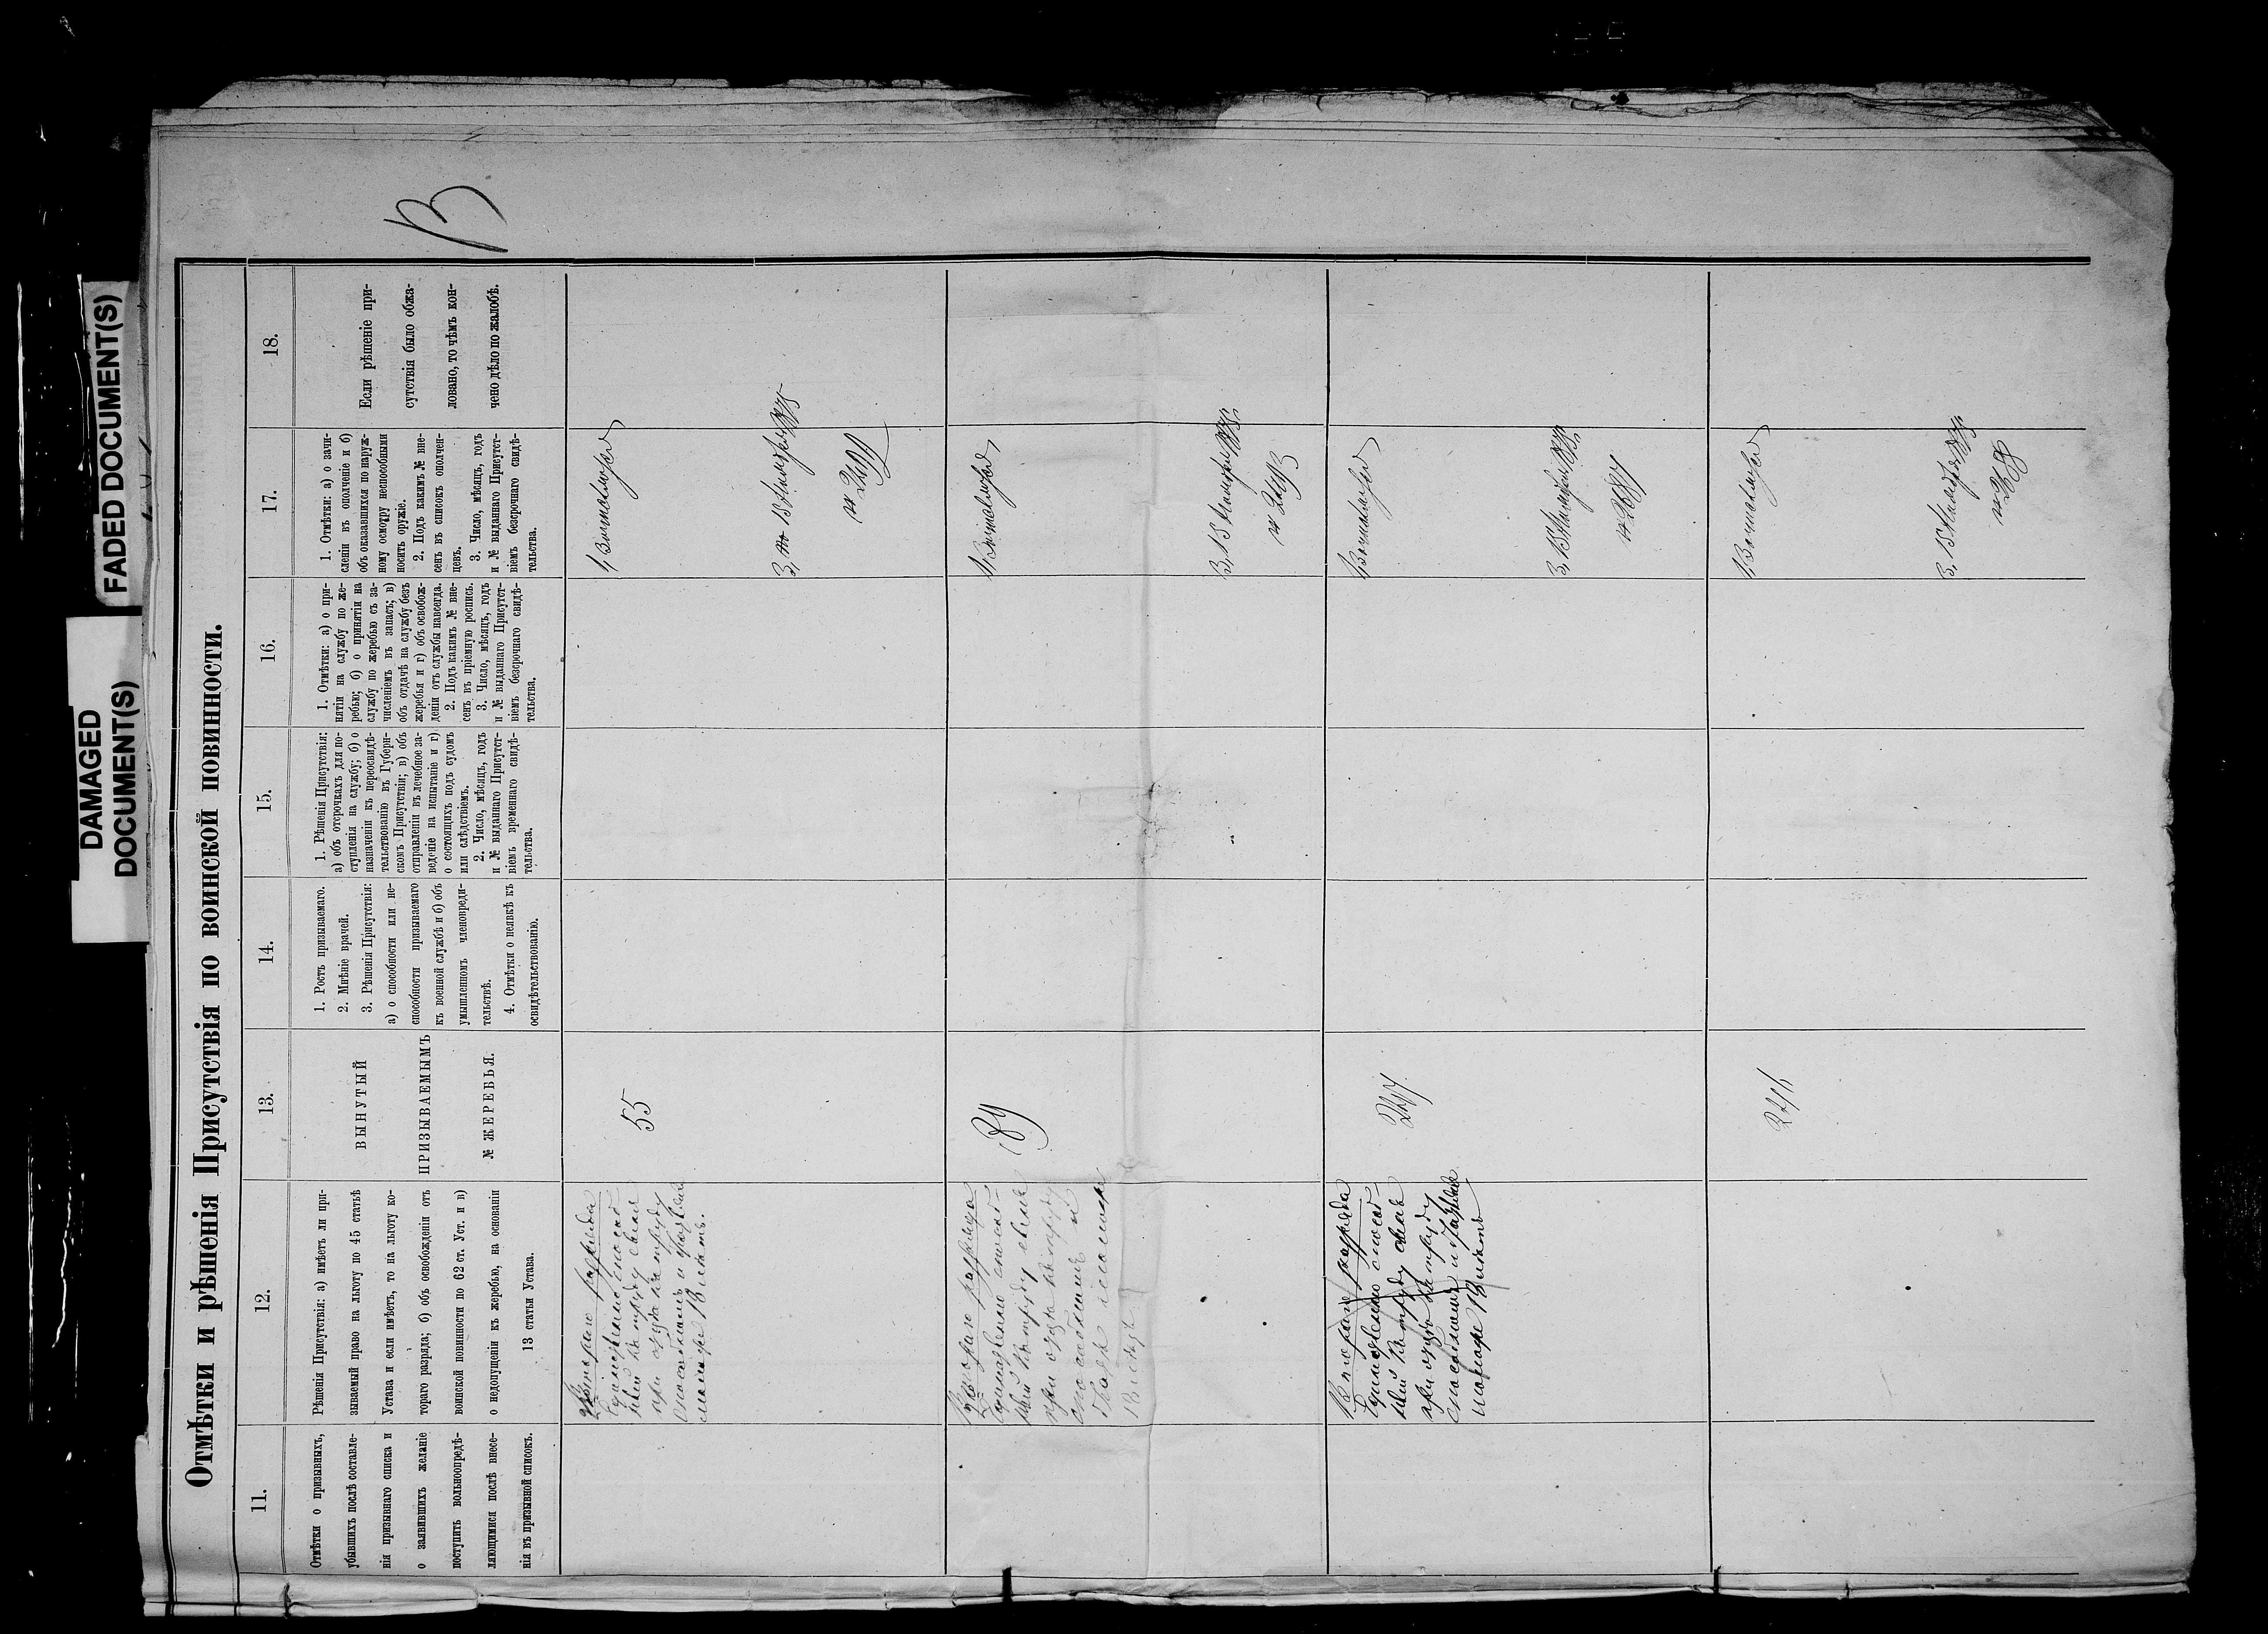 DAMAGED
DOCUMENT(S)
FADED DOCUMENT(S)
В
Отмѣтки и рѣшенія Присутствія по воинской повинности.
11.
Отмѣтки о призывныхъ,
убывшихъ послѣ составле-
нія призывнаго списка и
о заявившихъ желаніе
поступить вольноопредѣ-
ляющимися послѣ внесе-
нія въ призывной списокъ.
12.
Рѣшенія Присутствія: а) имѣетъ ли при-
зываемый право на льготу по 45 статьѣ
Устава и если имѣетъ, то на льготу ко-
тораго разряда; б) объ освобожденіи отъ
воинской повинности по 62 ст. Уст. и в)
о недопущеніи къ жеребью, на основаніи
13 статьи Устава.
13.
ВЫНУТЫЙ
ПРИЗЫВАЕМЫМЪ
№ ЖЕРЕБЬЯ.
14.
1. Ростъ призываемаго.
2. Мнѣніе врачей.
3. Рѣшенія Присутствія:
а) о способности или не-
способности призываемаго
къ военной службѣ и б) объ
умышленномъ членовреди-
тельствѣ.
4. Отмѣтки о неявкѣ къ
освидѣтельствованію.
15.
1. Рѣшенія Присутствія:
а) объ отсрочкахъ для по-
ступленія на службу; б) о
назначеніи къ переосвидѣ-
тельствованію въ Губерн-
скомъ Присутствіи; в) объ
отправленіи въ лечебное за-
веденіе на испытаніе и г)
о состоящихъ подъ судомъ
или слѣдствіемъ.
2. Число, мѣсяцъ, годъ
и № выданнаго Присутст-
віемъ временнаго свидѣ-
тельства.
16.
1. Отмѣтки: а) о при-
нятіи на службу по же-
ребью; б) о принятіи на
службу по жеребью съ за-
численіемъ въ запасъ; в)
объ отдачѣ на службу безъ
жеребья и г) объ освобож-
деніи отъ службы навсегда.
2. Подъ какимъ № вне-
сенъ въ пріемную роспись.
3. Число, мѣсяцъ, годъ
и № выданнаго Присутст-
віемъ безсрочнаго свидѣ-
тельства.
17.
1. Отмѣтки: а) о зачи-
сленіи въ ополченіе и б)
объ оказавшихся по наруж-
ному осмотру неспособными
носить оружіе.
2. Подъ какимъ № вне-
сенъ въ списокъ ополчен-
цевъ.
3. Число, мѣсяцъ, годъ
и № выданнаго Присутст-
віемъ безсрочнаго свидѣ-
тельства.
18.
Если рѣшеніе при-
сутствія было обжа-
ловано, то чѣмъ кон-
чено дѣло по жалобѣ.
Втораго разряда
Единственно способ-
ный къ труду сынъ
при отцѣ къ труду
способномъ и братѣ
55
3, 15
Втораго разряда
Единственно способ-
ный къ труду сынъ
при отцѣ къ труду
способномъ и
89
3, 15
Втораго разряда
Единственно способ-
ный къ труду сынъ
при отцѣ къ труду
способномъ и братѣ
3, 15
3, 15